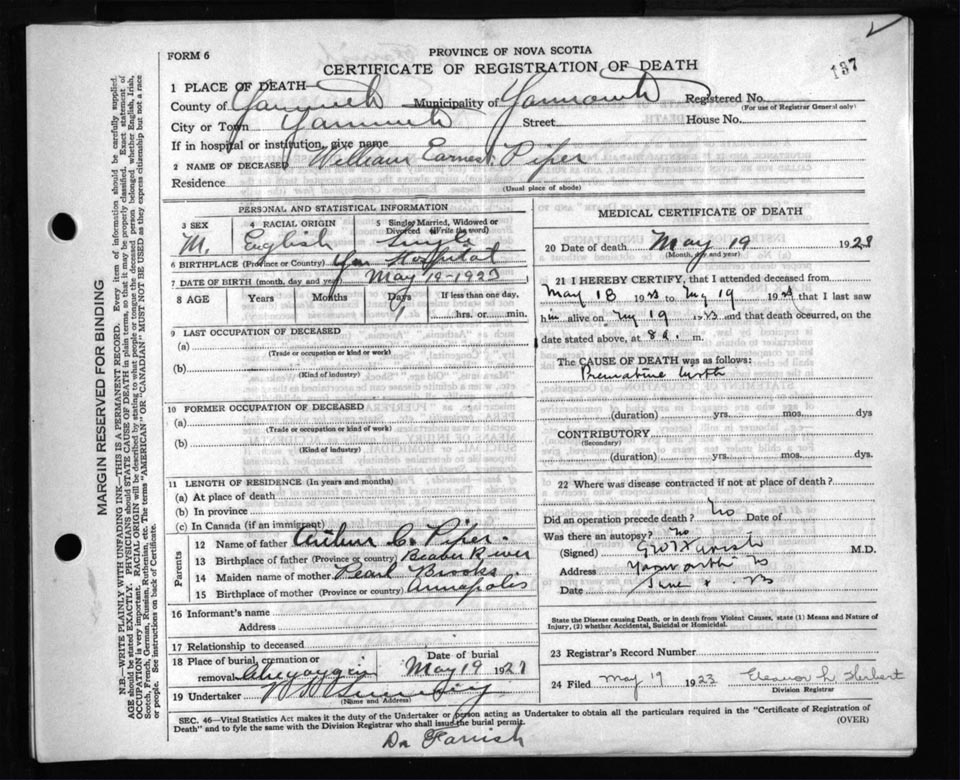 FORM 6
PROVINCE OF NOVA SCOTIA
CERTIFICATE OF REGISTRATION OF DEATH
137
1 PLACE OF DEATH
County of Yarmouth Municipality of Yarmouth Registered No.
(For use of Registrar General only)
City or Town Yarmouth Street House No.
If in hospital or institution, give name
2 NAME OF DECEASED William Earnest Piper
Residence
(Usual place of abode)
PERSONAL AND STATISTICAL INFORMATION
3 SEX 4 RACIAL ORIGIN 5 Single, Married, Widowed or Divorced (Write the word)
M. English Single
6 BIRTHPLACE (Province or Country) Yar Hospital
7 DATE OF BIRTH (month, day and year) May 19-1923
8 AGE Years Months Days If less than one day,
1 hrs. or min.
9 LAST OCCUPATION OF DECEASED
(a)
(Trade or occupation or kind or work)
(b)
(Kind of industry)
10 FORMER OCCUPATION OF DECEASED
(a)
(Trade or occupation or kind of work)
(b)
(Kind of industry)
11 LENGTH OF RESIDENCE (In years and months)
(a) At place of death
(b) In province
(c) In Canada (if an immigrant)
Parents
12 Name of father Arthur C. Piper.
13 Birthplace of father (Province or country) Beaver River
14 Maiden name of mother Pearl Brooks
15 Birthplace of mother (Province or country) Annapolis
16 Informant's name
Address
17 Relationship to deceased
18 Place of burial, cremation or removal Date of burial
May 19 192
19 Undertaker
(Name and Address)
MEDICAL CERTIFICATE OF DEATH
20 Date of death May 19 1923
(Month, day and year)
21 I HEREBY CERTIFY, that I attended deceased from
May 18 1923 to May 19 1923 that I last saw
him alive on May 19 1923 and that death occurred, on
date stated above, at 8 a. m.
The CAUSE OF DEATH was as follows:
Premature birth
(duration) yrs. mos. dys
CONTRIBUTORY
(Secondary)
(duration) yrs. mos. dys.
22 Where was disease contracted if not at place of death?
Did an operation precede death? No Date of
Was there an autopsy? No
(Signed) Farish M.D.
Address Yarmouth NS
Date June
State the Disease causing Death, or in death from Violent Causes, state (1) Means and Nature of
Injury, (2) whether Accidental, Suicidal or Homicidal.
23 Registrar's Record Number
24 Filed May 19 1923 Eleanor L Herbert
Division Registrar
SEC. 46—Vital Statistics Act makes it the duty of the Undertaker or person acting as Undertaker to obtain all the particulars required in the "Certificate of Registration of
Death" and to fyle the same with the Division Registrar who shall issue the burial permit.
(OVER)
Dr Farish
MARGIN RESERVED FOR BINDING
N.B.—WRITE PLAINLY WITH UNFADING INK—THIS IS A PERMANENT RECORD. Every item of information should be carefully supplied.
AGE should be stated EXACTLY. PHYSICIANS should STATE CAUSE OF DEATH in plain terms, so that it may be properly classified. Exact statement of
OCCUPATION is very important. RACIAL ORIGIN will be described by stating to what people or tongue the deceased person belonged whether English, Irish,
Scotch, French, German, Russian, Ruthenian, etc. The terms "AMERICAN" OR "CANADIAN" MUST NOT BE USED as they express citizenship but not a race
or people. See instructions on back of Certificate.